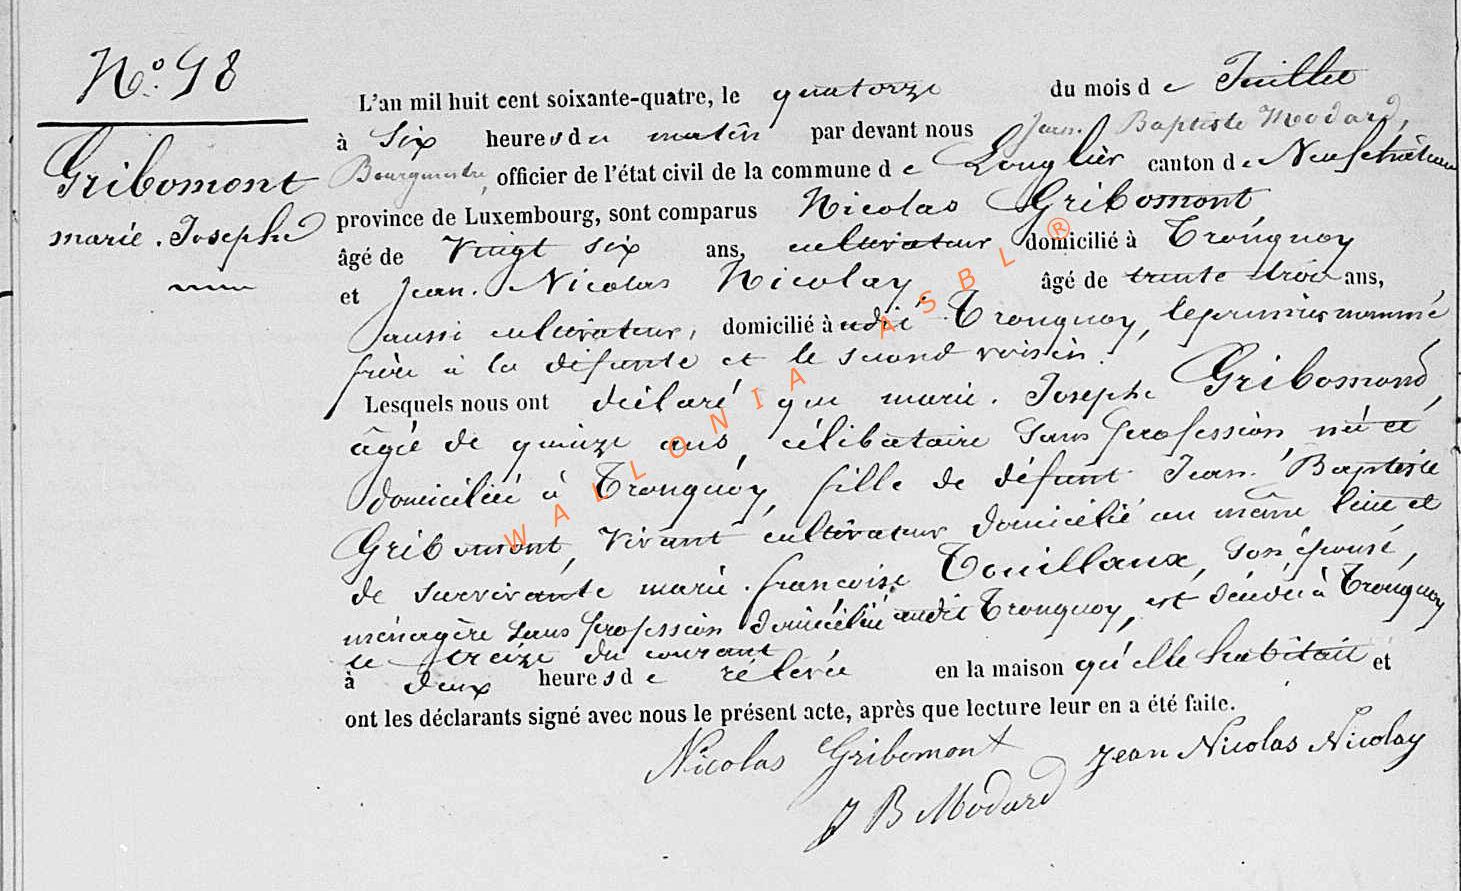 N.o 98
Gribomont
marie. Josephe
L'an mil huit cent soixante-quatre, le quatorze du mois de Juillet
à Six heures du matin par devant nous Jean. Baptiste Modard,
Bourgmestre, officier de l'état civil de la commune de Longlier canton de Neufchâteau
province de Luxembourg, sont comparus Nicolas Gribomont
âgé de Vingt six ans, cultivateur domicilié à Tronquoy
et Jean. Nicolas Nicolay, âgé de trente trois ans,
aussi cultivateur, domicilié à udit Tronquoy, le premier nommé
frère à la défunte et le second voisin.
Lesquels nous ont déclaré que marie. Josephe Gribomond,
âgée de quinze ans, célibataire Sans profession, née et
domiciliée à Tronquoy, fille de défunt Jean. Baptiste
Gribomont, Vivant cultivateur domicilié au même lieu et
de survivante marie. françoise Touillaux, son épouse,
ménagère sans profession domiciliée audit Tronquoy, est décédée à Tronquoy
le treize du courant
à deux heures de rélevée en la maison qu'elle habitait et
ont les déclarants signé avec nous le présent acte, après que lecture leur en a été faite.
Nicolas Gribomont Jean Nicolas Nicolay
J B Modard
WALLONIA ASBL ®